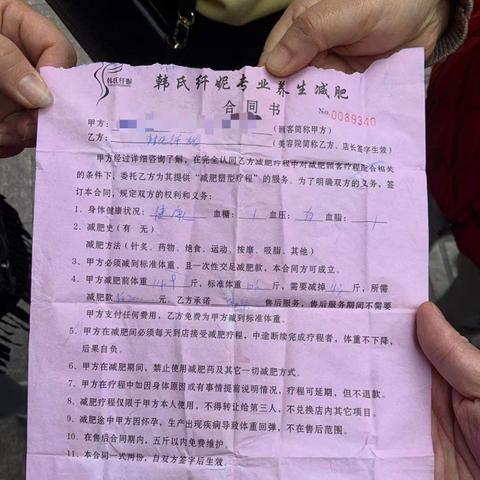 韩氏纤妮
韩氏纤妮专业养生减肥
合同书
No.0089340
甲方: (顾客简称甲方)
乙方: 韩氏纤妮 (美容院简称乙方、店长签字生效)
甲方经过详细咨询了解,在完全认同乙方减肥疗程中对减肥顾客疗程配合相关
的条件下,委托乙方为其提供“减肥塑型疗程”的服务。为了明确双方的义务,签
订本合同,规定双方的权利和义务:
1、身体健康状况: 健康 血糖: 血压: 血脂:
2、减肥史(有 无)
减肥方法(针灸、药物、绝食、运动、按摩、吸脂、其他)
3、甲方必须减到标准体重,且一次性交足减肥款,本合同方可成立。
4、甲方减肥前体重 斤,标准体重 斤,需要减掉 斤,所需
减肥款 元 乙方承诺 售后服务,售后服务期间不需要
甲方支付任何费用,乙方免费为甲方减到标准体重。
5、甲方在减肥间必须每天到店接受减肥疗程,中途断续完成疗程者,体重不下降,
后果自负。
6、甲方在减肥期间,禁止使用减肥药及其它一切减肥方式。
7、甲方在疗程中如因身体原因或有事情提前说明情况,疗程可延期,但不退款。
8、减肥疗程仅限于甲方本人使用,不得转让给第三人,不兑换店内其它项目。
9、减肥途中甲方因怀孕,生产出现疾病导致体重回弹,不在售后范围。
10、在售后合同期内,五斤以内免费维护。
11、本合同一式两份,自双方签字后生效。